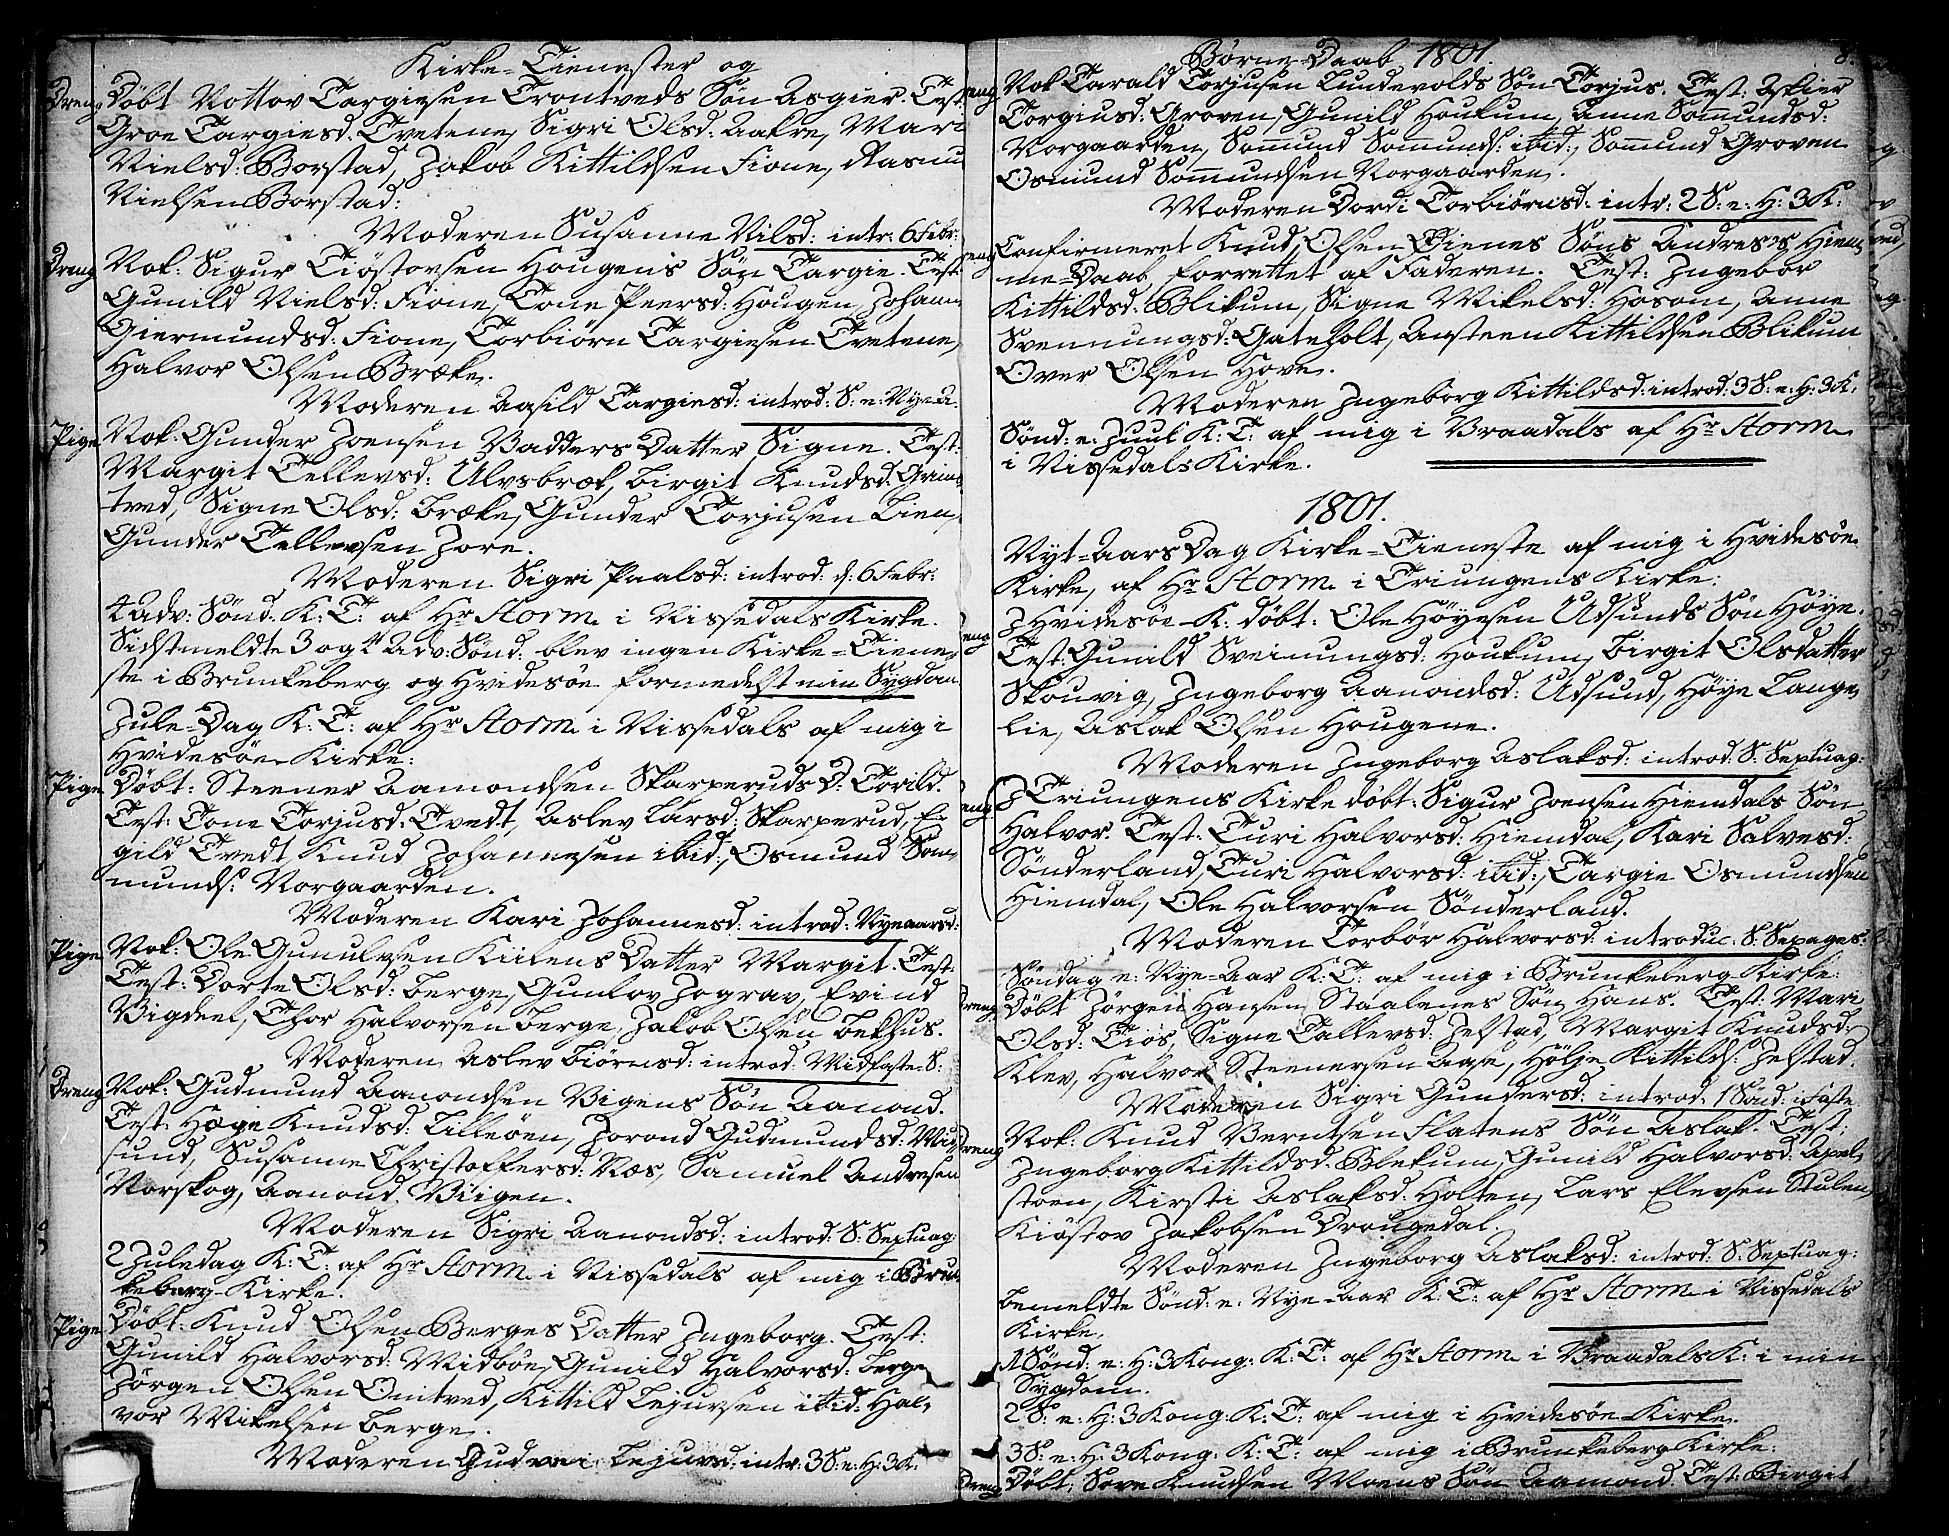 Kirke-Tienester og
Dreng Døbt Nottov Targiesen Trontveds Søn Asgier. Test:
Groe Targiesd: Tvetene, Sigri Olsd: Aakre, Mari
Nielsd: Borstad, Jakob Kittildsen Fione, Rasmu
Nielsen Borstad:
Moderen Susanne Nilsd: intr: 6 Febr:
Dreng Nok: Sigur Tiøstovsen Hougens Søn Targie. Test:
Gunild Nielsd: Fione, Tone Peersd: Hougen, Johann
Giermundsd: Fione, Torbiørn Targiesen Tvetene,
Halvor Olsen Bræke.
Moderen Aasild Targiesd: introd: S. e: Nye A.
Pige Nok: Gunder Joensen Vadders Datter Signe. Test:
Margit Tellevsd: Ulvsbræk, Birgit Knudsd: Grims
tved, Signe Olsd: Bræke, Gunder Torjusen Lien,
Gunder Tellevsen Jore.
Moderen Sigri Paalsd: introd: d: 6 Febr:
4 Adv: Sønd: K: T: af Hr Storm i Nissedals Kirke.
Sidstmeldte 3 og 4 Adv: Sønd: blev ingen Kirke-Tiene-
ste i Brunkeberg og Hvidesøe formedelst min Sygdom
Jule-Dag K: T: af Hr Storm i Nissedals af mig i
Hvidesøe Kirke:
Pige Døbt: Steener Aamondsen Skarperuds D: Torild.
Test: Tone Torjusd: Tvedt, Aslev Larsd: Skarperud, E-
gild Tvedt, Knud Johannesen ibid:, Osmund Som-
munds: Norgaarden.
Moderen Kari Johannesd: introd: Nyeaarsd:
Pige Nok: Ole Gunulvsen Kiilens Datter Margit. Test:
Test: Dorte Olsd: Berge, Gunlov Jograv, Evind
Vigdeel, Thor Halvorsen Berge, Jakob Olsen Bekhus.
Moderen Aslev Biørnsd: introd: Midfaste S:
Dreng Nok: Gudmund Aanondsen Vigens Søn Aanond.
Test: Hæge Knudsd: Lilleøen, Jorond Gudmundsd: Mid
sund, Susanne Christoffersd: Næs, Samuel Andresen
Norskog, Aanond Viigen.
Moderen Sigri Aanondsd: introd: S: Septuag:
2 Juledag K: T: af Hr Storm i Nissedals af mig i Brun
keberg Kirke.
Pige Døbt: Knud Olsen Berges Datter Ingeborg. Test:
Gunild Halvorsd: Midbøe, Gunild Halvorsd: Berge
Jørgen Olsen Omtved, Kittild Lejursen ibid: Hal-
vor Mikelsen Berge.
Moderen Gudvei Lejursd: intr: 3 S: e: H: 3 K:
Børne-Daab 1801. 8.
Nok Tarald Torjusen Lundevolds Søn Torjus. Test: Askier
Torgiusd: Groven, Gunild Houkum, Anne Sommundsd:
Norgaarden, Sommund Sommunds: ibid:, Sommund Groven
Osmund Sommundsen Norgaarden.
Moderen Dordi Torbiørnsd: intr: 2 S: e: H: 3 K:
Confirmeret Knud Olsen Øienes Søns Andreæs Hiem-
me-Daab forrettet af Faderen. Test: Ingebor
Kittildsd: Blikum, Signe Mikelsd: Hosom, Anne
Svennungsd: Gateholt, Austeen Kittildsen Blikum
Over Olsen Hove.
Moderen Ingeborg Kittildsd: introd: 3 S: e: H: 3 K:
Sønd: e: Juul K: T: af mig i Vraadals af Hr Storm
i Nissedals Kirke.
1801.
Nyt-Aars Dag Kirke-Tieneste af mig i Hvidesøe
Kirke, af Hr Storm i Triungens Kirke:
I Hvidesøe K: døbt: Ole Høyesen Udsunds Søn Høye.
Test: Gunild Sveinungsd: Houkum, Birgit Olsdatter
Skouvig, Ingeborg Aanondsd: Udsund, Høye Lange-
lie, Aslak Olsen Hougene.
Moderen Ingeborg Aslaksd: introd: S: Septuag:
I Triungens Kirke døbt: Sigur Joensen Hiemdals Søn
Halvor. Test: Turi Halvorsd: Hiemdal, Kari Salvesd:
Sønderland, Turi Halvorsd: ibid:, Targie Osmundsen
Hiemdal, Ole Halvorsen Sønderland.
Moderen Torbør Halvorsd: introduc: S: Sexages:
Søndag e: Nye-Aar K: T: af mig i Brunkeberg Kirke:
Dreng Døbt Jørgen Hansen Staalenes Søn Hans. Test: Mari
Olsd: Tiøs, Signe Tallevsd: Jelstad, Margit Knudsd:
Klev, Halvor Steenersen Aase, Hølje Kittilds: Jelstad.
Moderen Sigri Gundersd: introd: 1 Sønd: i Faste
Dreng Nok: Knud Berntsen Flatens Søn Aslak. Test:
Ingeborg Kittildsd: Blekum, Gunild Halvorsd: Apal-
stoen, Kirsti Aslaksd: Holten, Lars Elevsen Stulen
Kiøstov Jakobsen Drougedal.
Moderen Ingeborg Aslaksd: introd: S: Septuag:
bemeldte Sønd: e: Nye-Aar K: T: af Hr Storm i Nissedals
Kirke.
1 Sønd: e: H: 3 Kong: K: T: af Hr Storm i Vraadals K: i min
Sygdom.
2 S: e: H: 3 Kong: K: T: af mig i Hvidesøe Kirke.
3 S: e: H: 3 Kong: K: T: af mig i Brunkeberg Kirke:
Dreng Døbt: Sove Knudsen Moens Søn Aamond. Test: Birgit